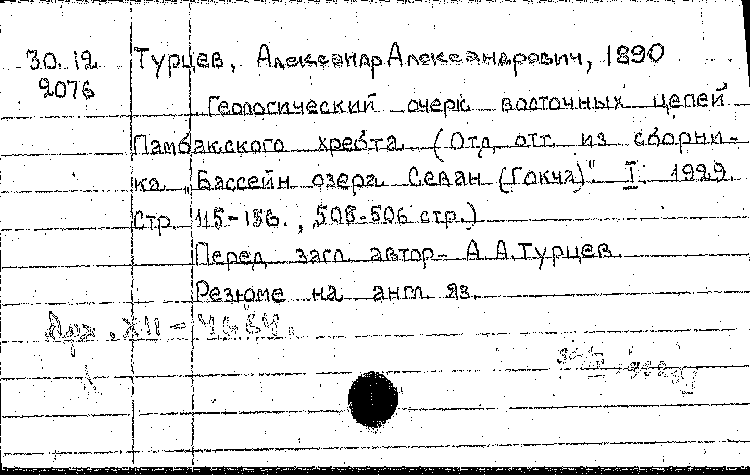 30.12 Турцев, Александр Александрович, 1890
2076
Геологический очерк восточных цепей
Памбакского хребта (Отд. отт. из сборни-
ка „Бассейн озера Севан (Гокча)" I. 1929.
Стр. 115-186., 505-506 стр.)
Перед загл. автор- А.А.Турцев.
Резюме на англ. яз.